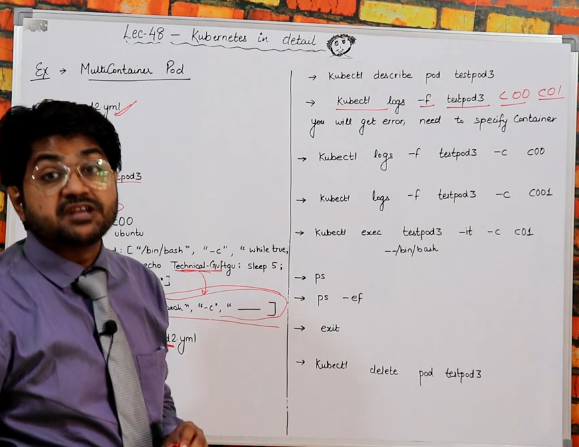 Lec-48 — Kubernetes in detail
Ex → MultiContainer Pod
d2.yml
pod3
C00
ubuntu
: ["/bin/bash", "-c", "while true,
echo Technical-Guftgu; sleep 5;
"]
bash", "-c", " — ]
d2.yml
→ Kubectl describe pod testpod3
→ Kubectl logs -f testpod3 C00 C01
you will get error, need to specify Container
→ Kubectl logs -f testpod3 -c C00
→ Kubectl logs -f testpod3 -c C001
→ Kubectl exec testpod3 -it -c C01
--/bin/bash
→ ps
→ ps -ef
→ exit
→ Kubectl delete pod testpod3